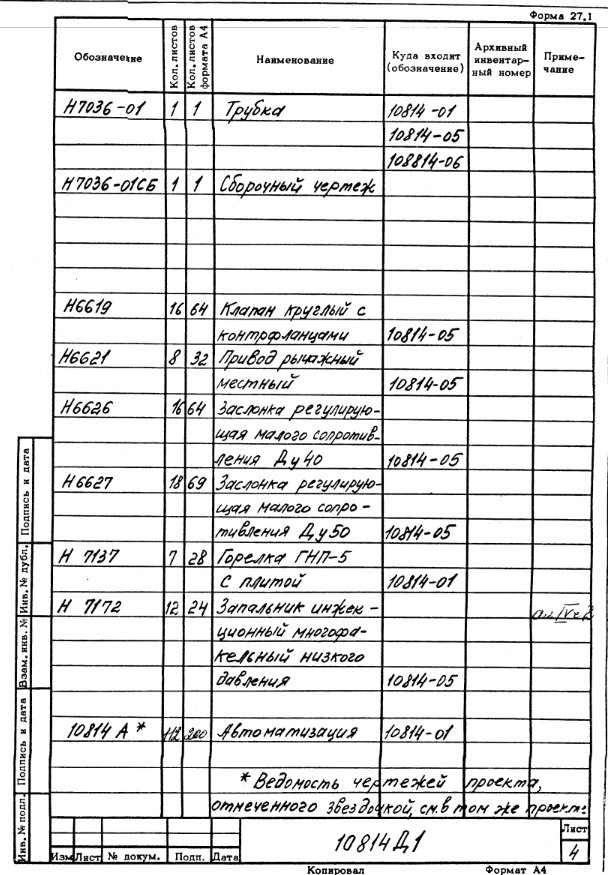 Форма 27.1
Обозначение Кол. листов Кол. листов формата А4 Наименование Куда входит (обозначение) Архивный инвентар-ный номер Приме-чание
Н7036-01 1 1 Трубка 10814-01
10814-05
108814-06
Н7036-01СБ 1 1 Сборочный чертеж
Н6619 16 64 Клапан круглый с
контрфланцами 10814-05
Н6621 8 32 Привод рычажный
местный 10814-05
Н6626 16 64 Заслонка регулирую-
щая малого сопротив-
ления Ду40 10814-05
Н6627 18 69 Заслонка регулирую-
щая малого сопро-
тивления Ду50 10814-05
Н 7137 7 28 Горелка ГНП-5
с плитой 10814-01
Н 7172 12 24 Запальник инжек-
ционный многофа-
кельный низкого
давления 10814-05
10814 А* 112 300 Автоматизация 10814-01
* Ведомость чертежей проекта,
отмеченного звездочкой, см. в том же проекте
Инв. № подл. Подпись и дата Взам. инв. № Инв. № дубл. Подпись и дата
10814Д1
Лист
4
Изм Лист № докум. Подп. Дата
Копировал Формат А4